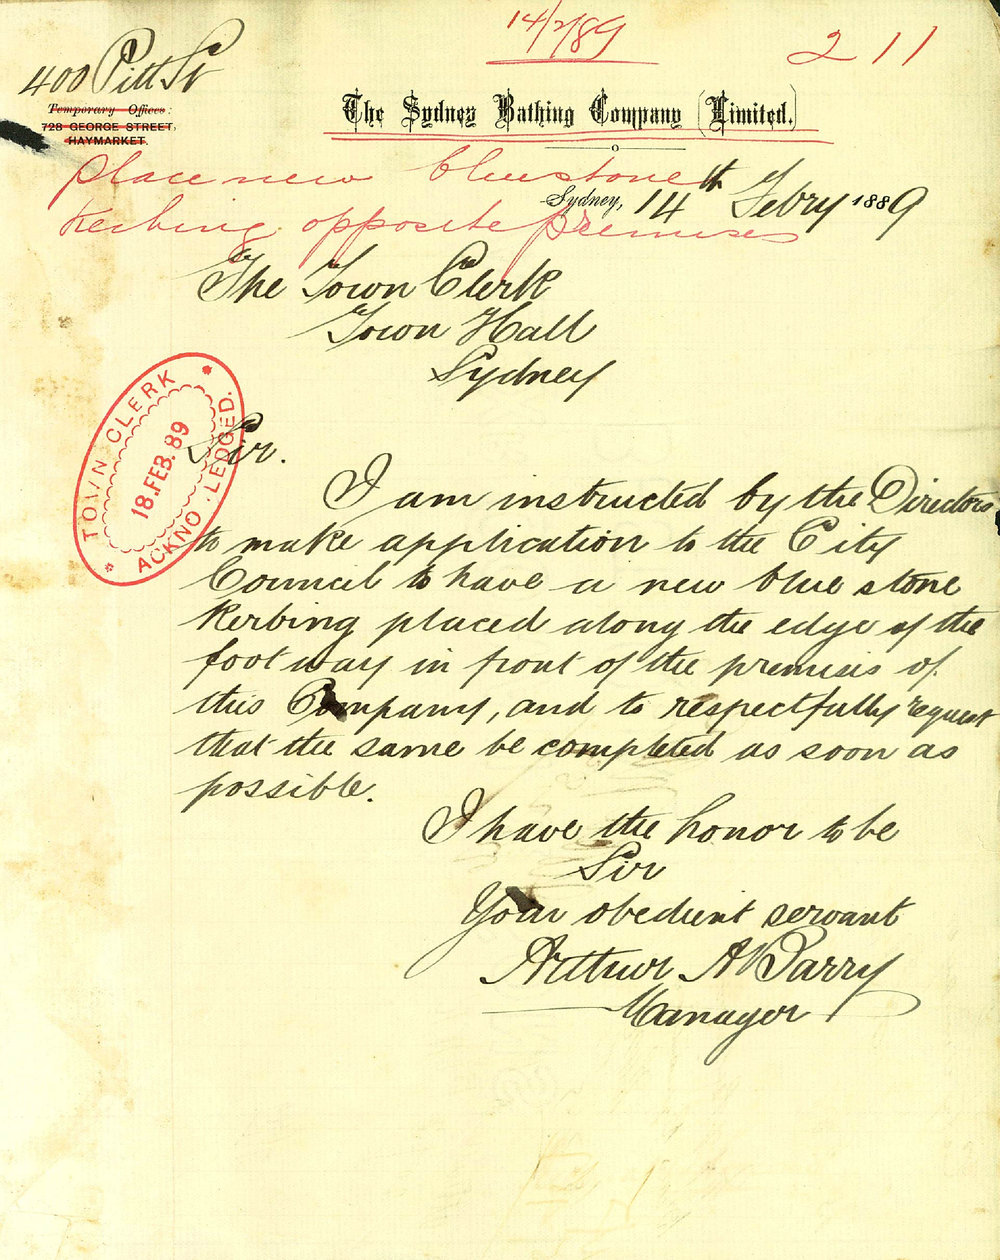 14/2/89
211
400 Pitt St
Temporary Offices:
728 GEORGE STREET,
HAYMARKET.
The Sydney Bathing Company (Limited.)
place new bluestone
kerbing opposite premises
Sydney, 14th Febry 1889
The Town Clerk
Town Hall
Sydney
TOWN CLERK
18.FEB.89
ACKNOWLEDGED.
Sir.
I am instructed by the Directors
to make application to the City
Council to have a new blue stone
Kerbing placed along the edge of the
footway in front of the premises of
this Company, and to respectfully request
that the same be completed as soon as
possible.
I have the honor to be
Sir
Your obedient servant
Arthur A Parry
Manager